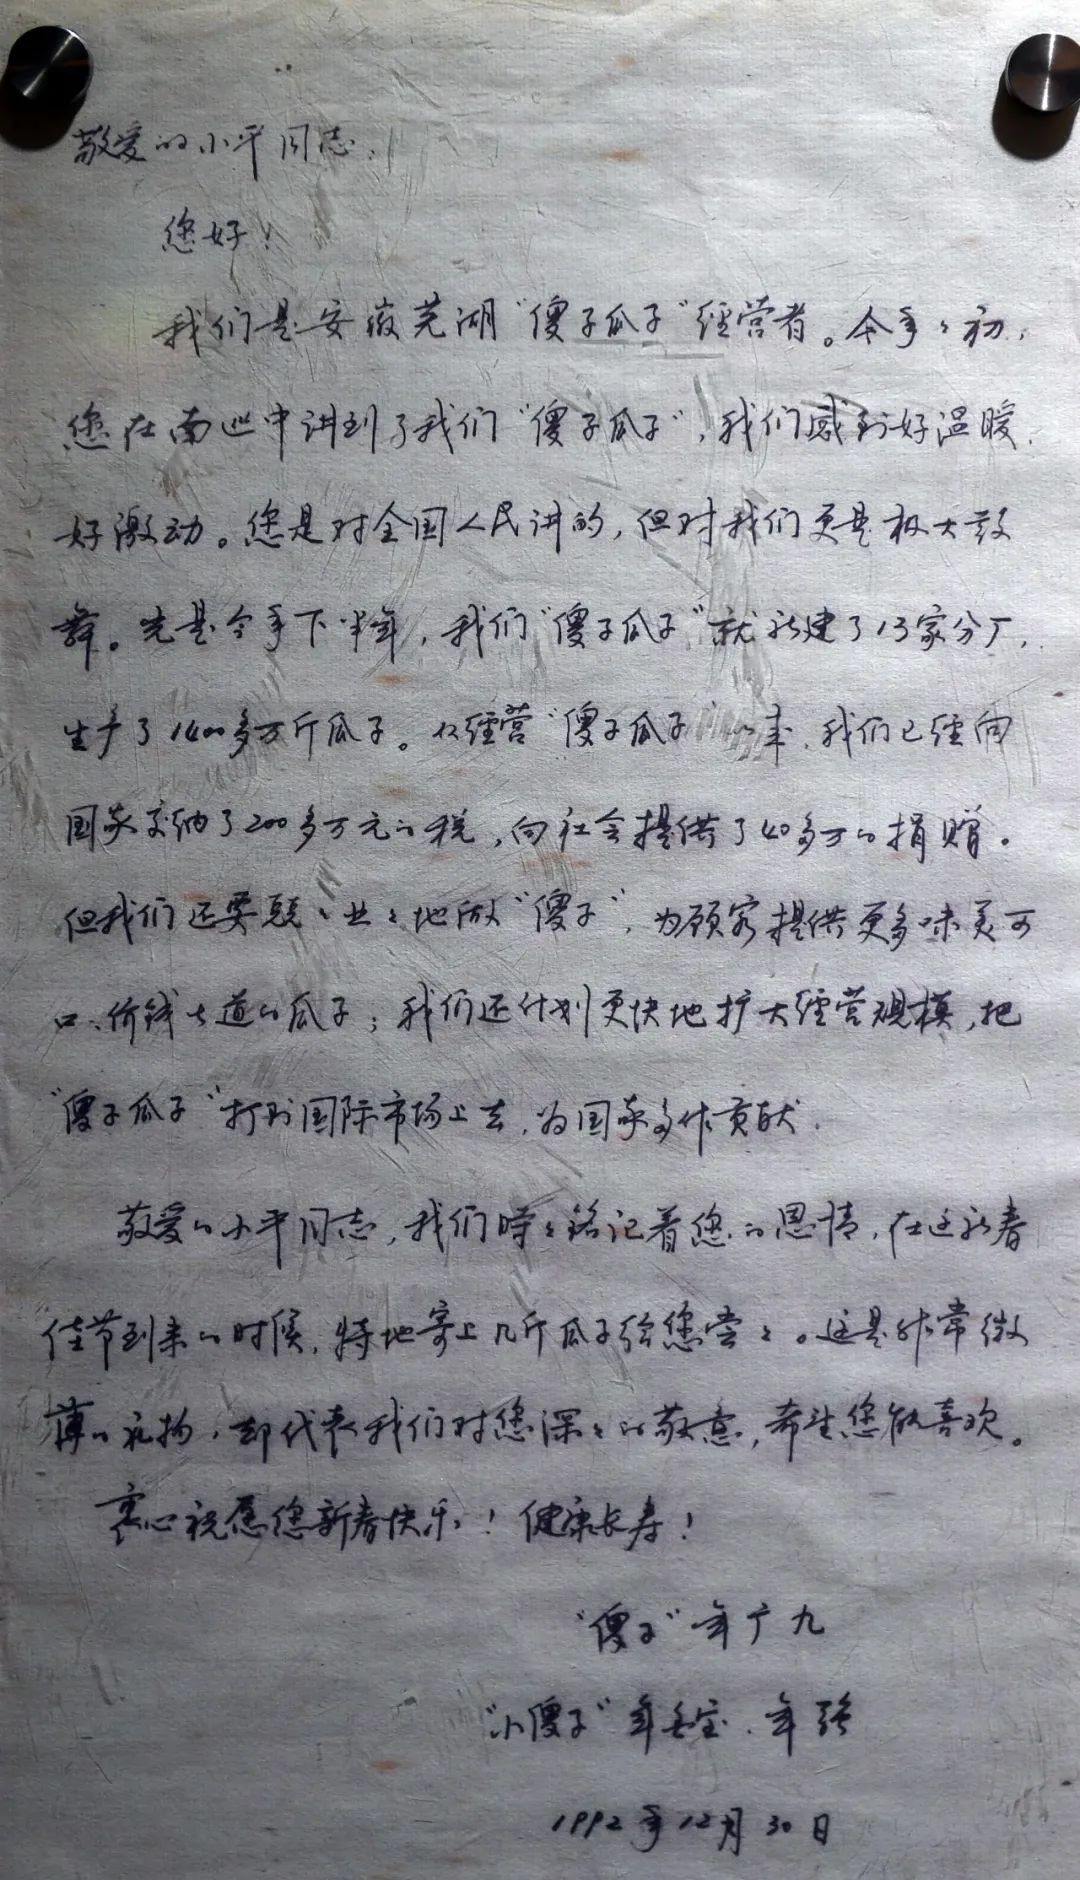 敬爱的小平同志：
您好！
我们是安徽芜湖“傻子瓜子”经营者。今年年初，
您在南巡中讲到了我们“傻子瓜子”，我们感到好温暖，
好激动。您是对全国人民讲的，但对我们更是极大鼓
舞。光是今年下半年，我们“傻子瓜子”就新建了13家分厂，
生产了1400多万斤瓜子。从经营“傻子瓜子”以来，我们已经向
国家交纳了200多万元的税，向社会提供了40多万的捐赠。
但我们还要兢兢业业地做“傻子”，为顾客提供更多味美可
口、价钱公道的瓜子；我们还计划更快地扩大经营规模，把
“傻子瓜子”打到国际市场上去，为国家多作贡献。
敬爱的小平同志，我们时时铭记着您的恩情，在这新春
佳节到来的时候，特地寄上几斤瓜子给您尝尝。这是非常微
薄的礼物，却代表我们对您深深的敬意，希望您能喜欢。
衷心祝愿您新春快乐！健康长寿！
“傻子”年广九
“小傻子”年金宝、年强
1992年12月30日